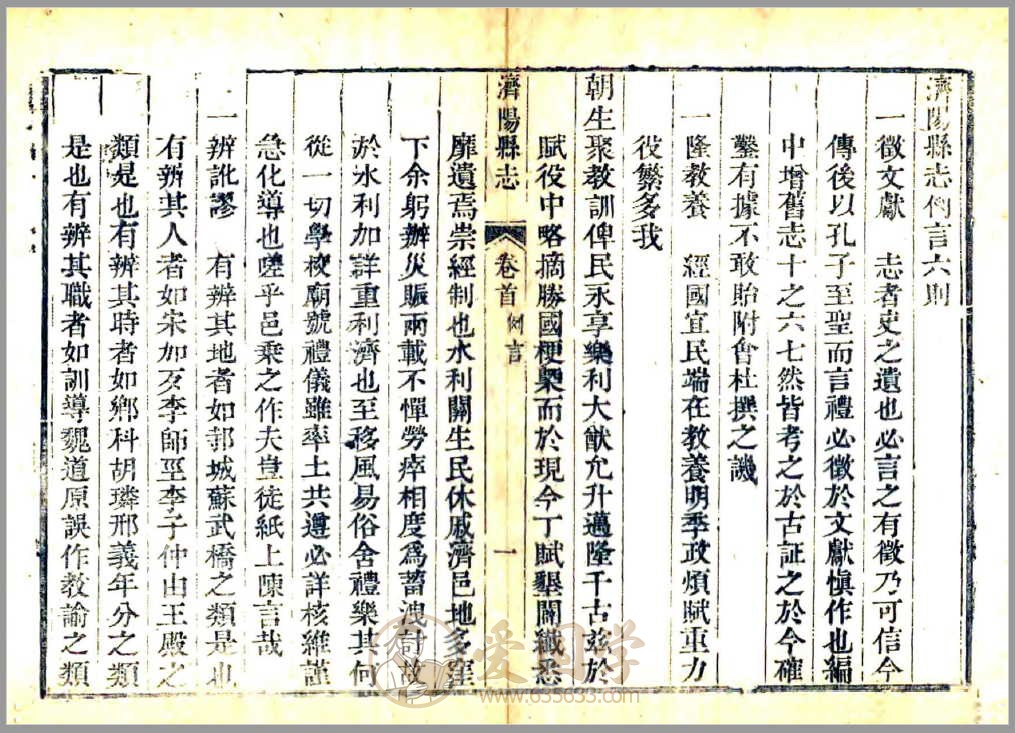 濟陽縣志例言六則
一徵文獻 志者史之遺也必言之有徵乃可信今
傳後以孔子至聖而言禮必徵於文獻慎作也編
中增舊志十之六七然皆考之於古証之於今確
鑿有據不敢貽附會杜撰之譏
一隆教養 經國宜民端在教養明季政煩賦重力
役繁多我
朝生聚教訓俾民永享樂利大猷允升邁隆千古兹於
賦役中略摘勝國梗槩而於現今丁賦墾闢纎悉
濟陽縣志 卷首 例言 一
靡遺焉崇經制也水利關生民休戚濟邑地多窪
下余躬辦災賑兩載不憚勞瘁相度為蓄洩討故
於水利加詳重利濟也至移風易俗舍禮樂其何
從一切學校廟號禮儀雖率土共遵必詳核維謹
急化導也嗟乎邑乘之作夫豈徒紙上陳言哉
一辨訛謬 有辨其地者如郚城蘇武橋之類是也
有辨其人者如宋加亥李師至李子仲由王殿之
類是也有辨其時者如鄉科胡璘邢義年分之類
是也有辨其職者如訓導魏道原誤作教諭之類
愛国学
www.635633.com